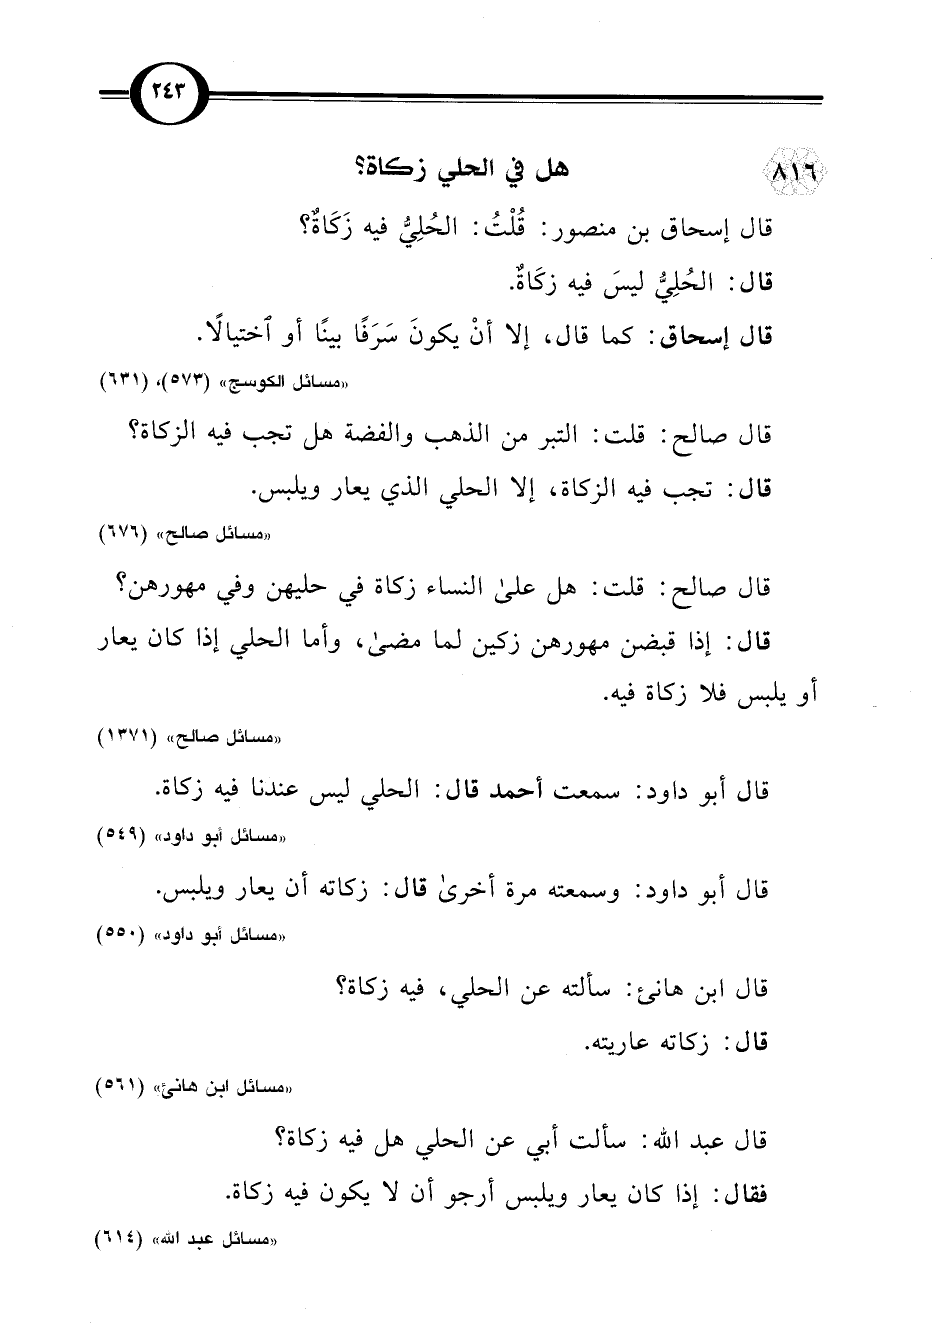 ٢٤٣
٨١٦ هل في الحلي زكاة؟
قال إسحاق بن منصور: قُلْتُ: الحُلِيُّ فيه زَكَاةٌ؟
قال: الحُلِيُّ ليسَ فيه زكَاةٌ.
قال إسحاق: كما قال، إلا أنْ يكونَ سَرَفًا بينًا أو ٱختيالًا.
«مسائل الكوسج» (٥٧٣)، (٦٣١)
قال صالح: قلت: التبر من الذهب والفضة هل تجب فيه الزكاة؟
قال: تجب فيه الزكاة، إلا الحلي الذي يعار ويلبس.
«مسائل صالح» (٦٧٦)
قال صالح: قلت: هل علىٰ النساء زكاة في حليهن وفي مهورهن؟
قال: إذا قبضن مهورهن زكين لما مضىٰ، وأما الحلي إذا كان يعار
أو يلبس فلا زكاة فيه.
«مسائل صالح» (١٣٧١)
قال أبو داود: سمعت أحمد قال: الحلي ليس عندنا فيه زكاة.
«مسائل أبو داود» (٥٤٩)
قال أبو داود: وسمعته مرة أخرىٰ قال: زكاته أن يعار ويلبس.
«مسائل أبو داود» (٥٥٠)
قال ابن هانئ: سألته عن الحلي، فيه زكاة؟
قال: زكاته عاريته.
«مسائل ابن هانئ» (٥٦١)
قال عبد الله: سألت أبي عن الحلي هل فيه زكاة؟
فقال: إذا كان يعار ويلبس أرجو أن لا يكون فيه زكاة.
«مسائل عبد الله» (٦١٤)